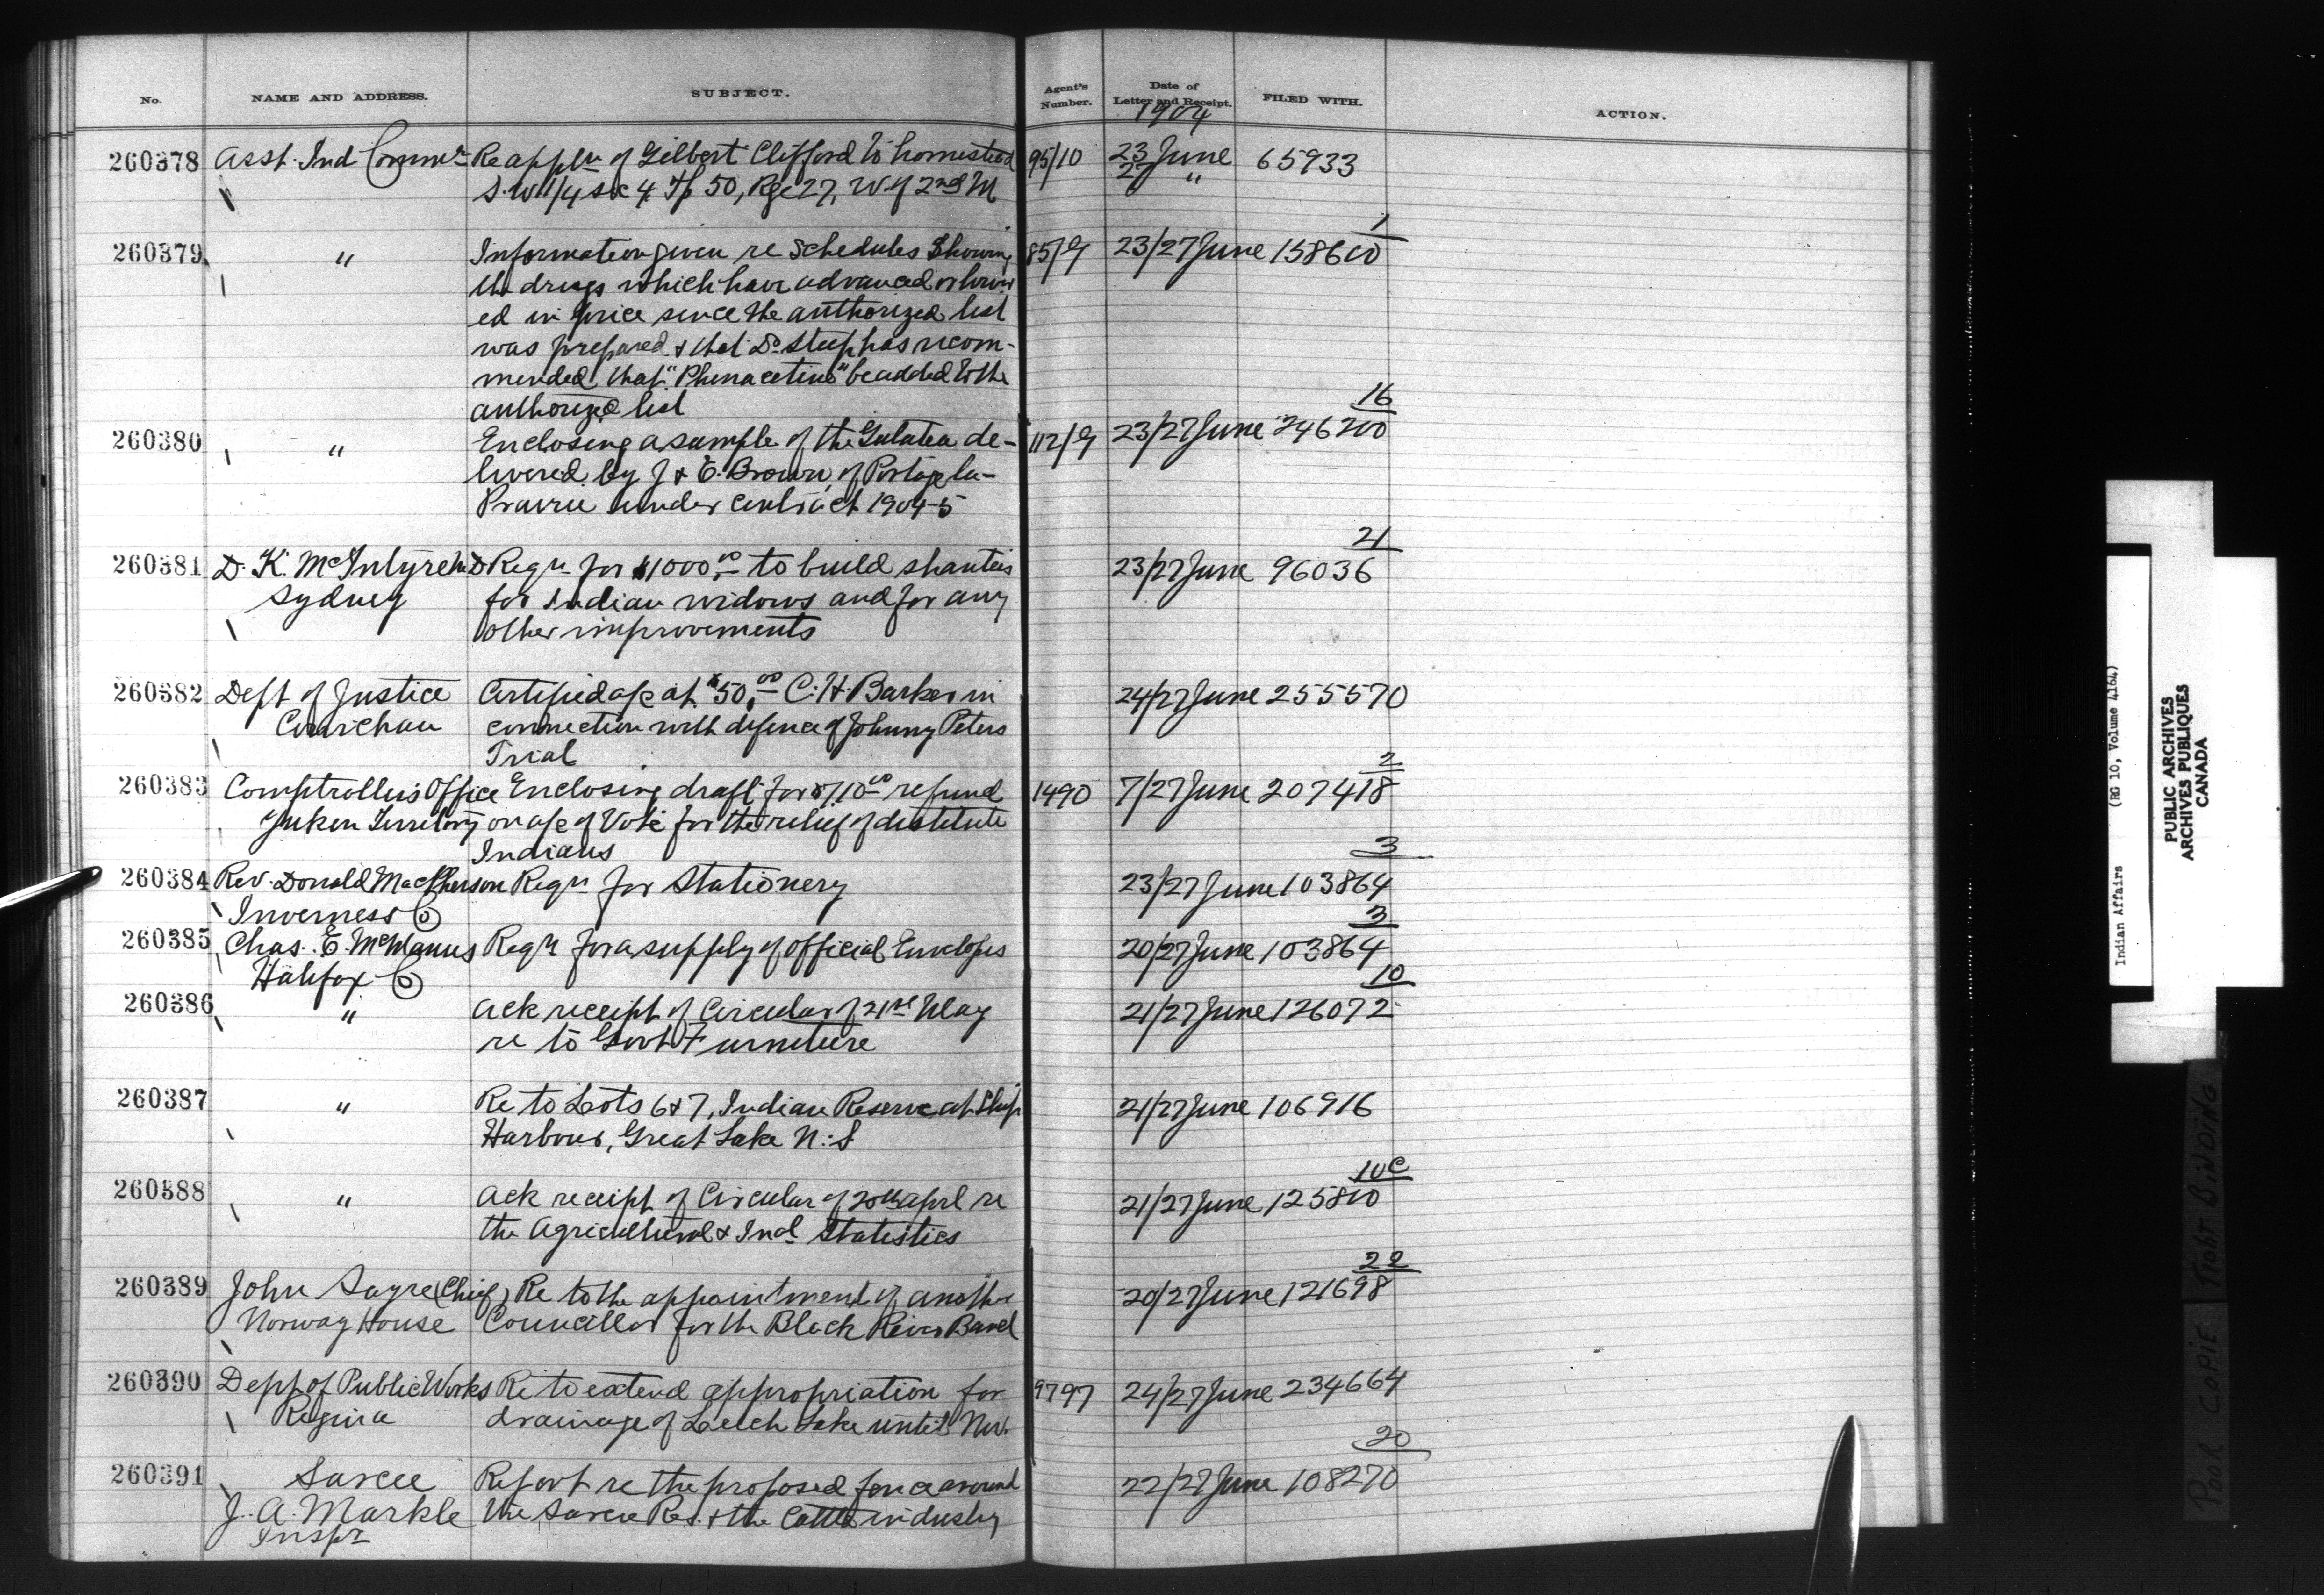 No. NAME AND ADDRESS. SUBJECT. Agent's Number. Date of Letter and Receipt. FILED WITH. ACTION.
1904
260378 Asst. Ind Commr Re appln of Gilbert Clifford to homestead 95/10 23 June 65933
S.W 1/4 Sec 4, Tp 50, Rge 27, W of 2nd M 27 "
1
260379 " Information given re Schedules showing 85/9 23/27 June 158610
the drugs which have advanced or lower
ed in price since the authorized list
was prepared & that Dr. Steep has recom-
mended that "Phenacetine" be added to the
authorized list
16
260380 " Enclosing a sample of the Galatea de- 112/9 23/27 June 246200
livered by J & E. Brown, of Portage la-
Prairie under contract 1904-5
21
260381 D. K. McIntyre MD Reqn for $1000.00 to build shanties 23/27 June 96036
Sydney for Indian widows and for any
other improvements
260382 Dept of Justice Certified a/c at $50.00 C. H. Barker in 24/27 June 255570
Cowichan connection with defence of Johnny Peters
Trial
2
260383 Comptrollers Office Enclosing draft for $710.00 refund 1490 7/27 June 207418
Yukon Territory on a/c of Vote for the relief of destitute
Indians
3
260384 Rev. Donald MacPherson Reqn for Stationery 23/27 June 103864
Inverness Co
3
260385 Chas. E. McManus Reqn for a supply of official Envelopes 20/27 June 103864
Halifax Co
10
260386 " Ack receipt of Circular of 21st May 21/27 June 126072
re to Govt Furniture
260387 " Re to Lots 6 & 7, Indian Reserve at Ship 21/27 June 106916
Harbour, Great Lake N.S
10C
260388 " Ack receipt of Circular of 20th aprl re 21/27 June 125810
the Agricultural & Indl Statistics
22
260389 John Sayre (Chief) Re to the appointment of another 20/27 June 121698
Norway House Councillor for the Black River Band
260390 Dept of Public Works Re to extend appropriation for 9797 24/27 June 234664
Regina drainage of Leech Lake until Nov.
20
260391 Sarcee Report re the proposed fence around 22/27 June 108270
J. A. Markle the Sarcee Res. & the Cattle industry
Inspr
Indian Affairs (RG 10, Volume 4164)
PUBLIC ARCHIVES
ARCHIVES PUBLIQUES
CANADA
POOR COPIE TIGHT BINDING